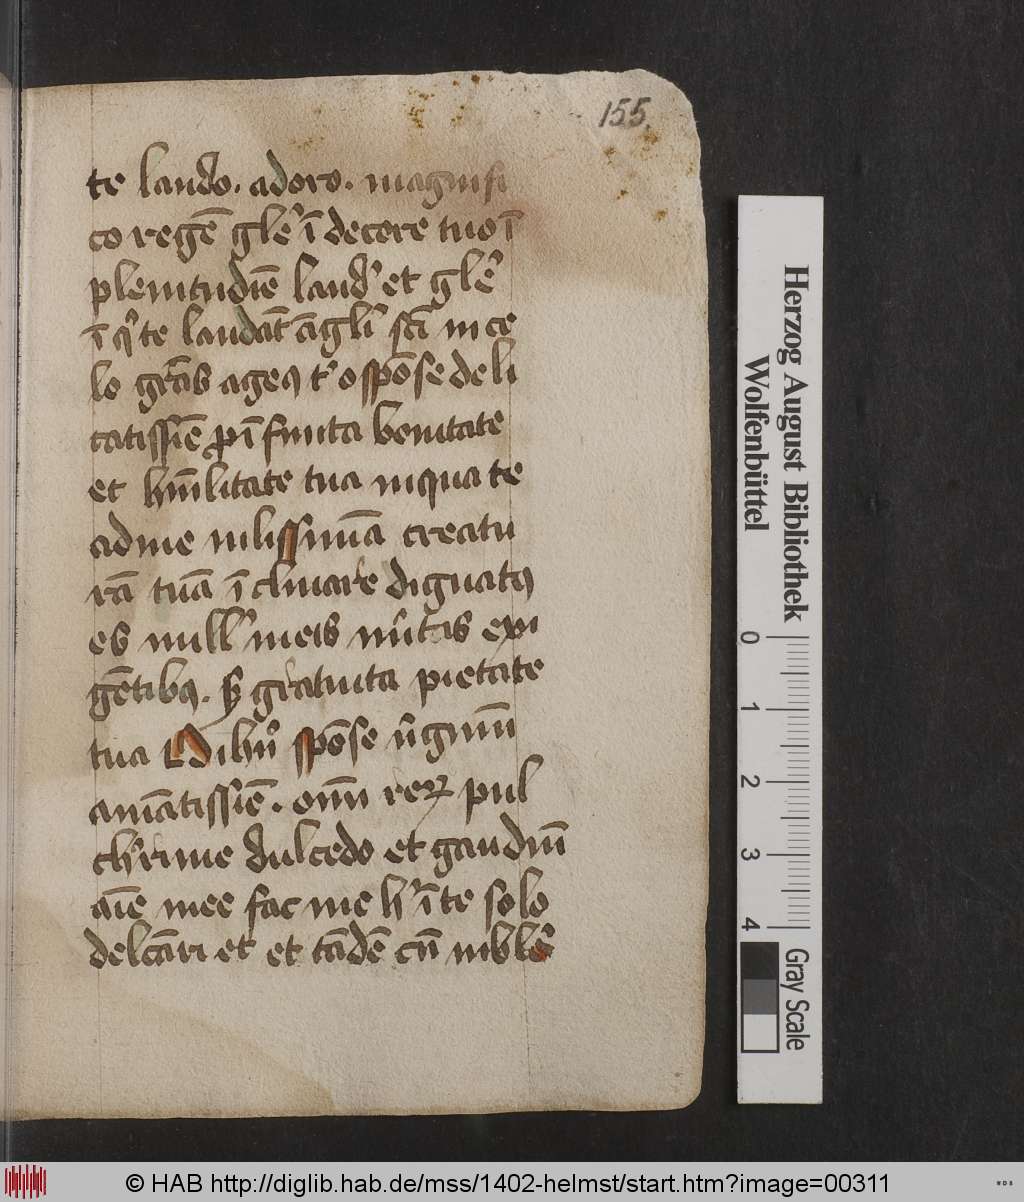 155
te laudo. adoro. magnifi
co regē glīe ī decore tuo ī
plenitudīe laudis et glīe
ī q te laudāt āgli scī in ce
lo grās agens t o spōse deli
catissīe p īfinita bonitate
et hūilitate tua in qua te
ad me vilissimā creatu
rā tuā īclinare dignatus
es null meis mitis exi
gētibus. s gratuita pietate
tua O dn ihu spōse virginū
amātissīe. om̄ rerꝝ pul
cherrime dulcedo et gaudiū
aīe mee fac me h ī te solo
delcāri et et tādē cū
Herzog August Bibliothek
Wolfenbüttel
0 1 2 3 4
Gray Scale
© HAB http://diglib.hab.de/mss/1402-helmst/start.htm?image=00311